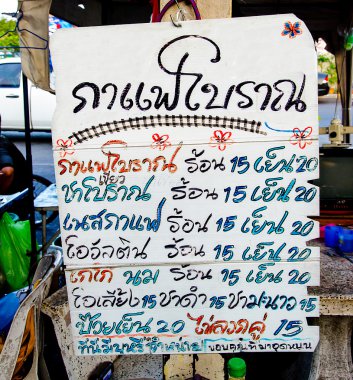 กาแฟโบราณ
กาแฟโบราณ ร้อน 15 เย็น 20
เขียว
ชาโบราณ ร้อน 15 เย็น 20
เนสกาแฟ ร้อน 15 เย็น 20
โอวัลติน ร้อน 15 เย็น 20
โกโก้ นม ร้อน 15 เย็น 20
โอเลี้ยง 15 ชาดำ 15 ชามะนาว 15
ป๊อยเย็น 20 ไข่ลวกคู่ 15
ที่นี่มีบุหรี่จำหน่าย ขอบคุณที่มาอุดหนุน